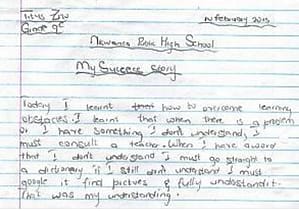 Grade 9
February 2015
High School
My Success Story
Today I learnt how to overcome learning
obstacles. I learns that when there is a problem
or I have something I don't understand, I
must consult a teacher. When I have a word
that I don't understand I must go straight to
a dictionary if I still don't understand I must
google it find pictures & fully understand it.
That was my understanding.